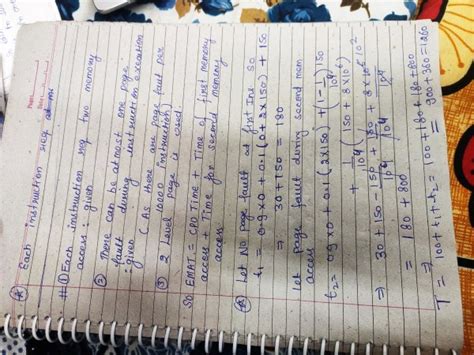 Each instruction req
#① Each instruction req two memory
access : given
② There can be atmost one page
fault during instruction execution
: given (As there one page fault per
10000 instruction).
③ 2 Level page is used
SO EMAT = CPU Time + Time of first memory
access + Time for second memory
access
Let No page fault at first Ins. so
t₁ = 0.9×0 + 0.1(0+2×150) + 150
⇒ 30 + 150 = 180
Let page fault during second mem
access
t₂ = 0.9×0 + 0.1(2×150) + (1 - 1/10⁴)150
+ 1/10⁴ (150 + 8×10⁶)
⇒ 30 + 150 - 150/10⁴ + 150/10⁴ + 8×10⁶/10⁴
= 180 + 800
T ⇒ 100 + t₁ + t₂ ⇒ 100 + 180 + 180 + 800
⇒ 900 + 360 = 1260